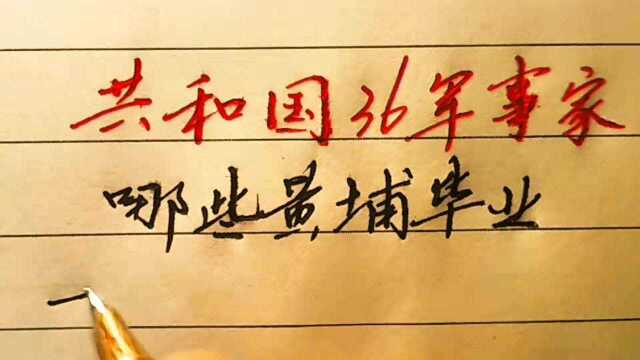 共和国36军事家
哪些黄埔毕业
一